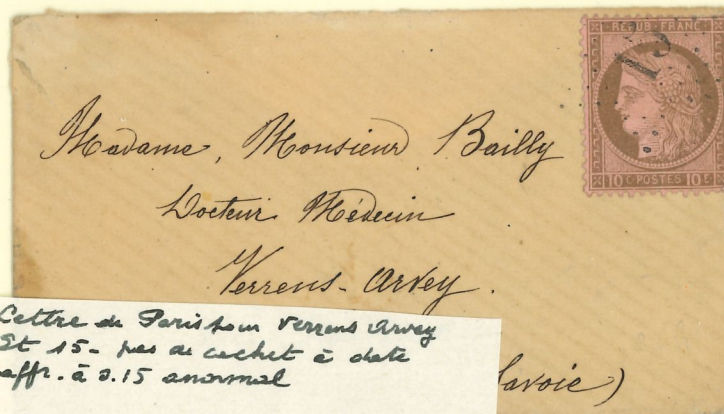 REPUB · FRANC
15
10 c POSTES 10 c
Madame, Monsieur Bailly
Docteur Médecin
Verrens-Arvey.
Savoie)
Lettre de Paris pour Verrens Arvey
St 15 - pas de cachet à date
affr. à 0.15 anormal